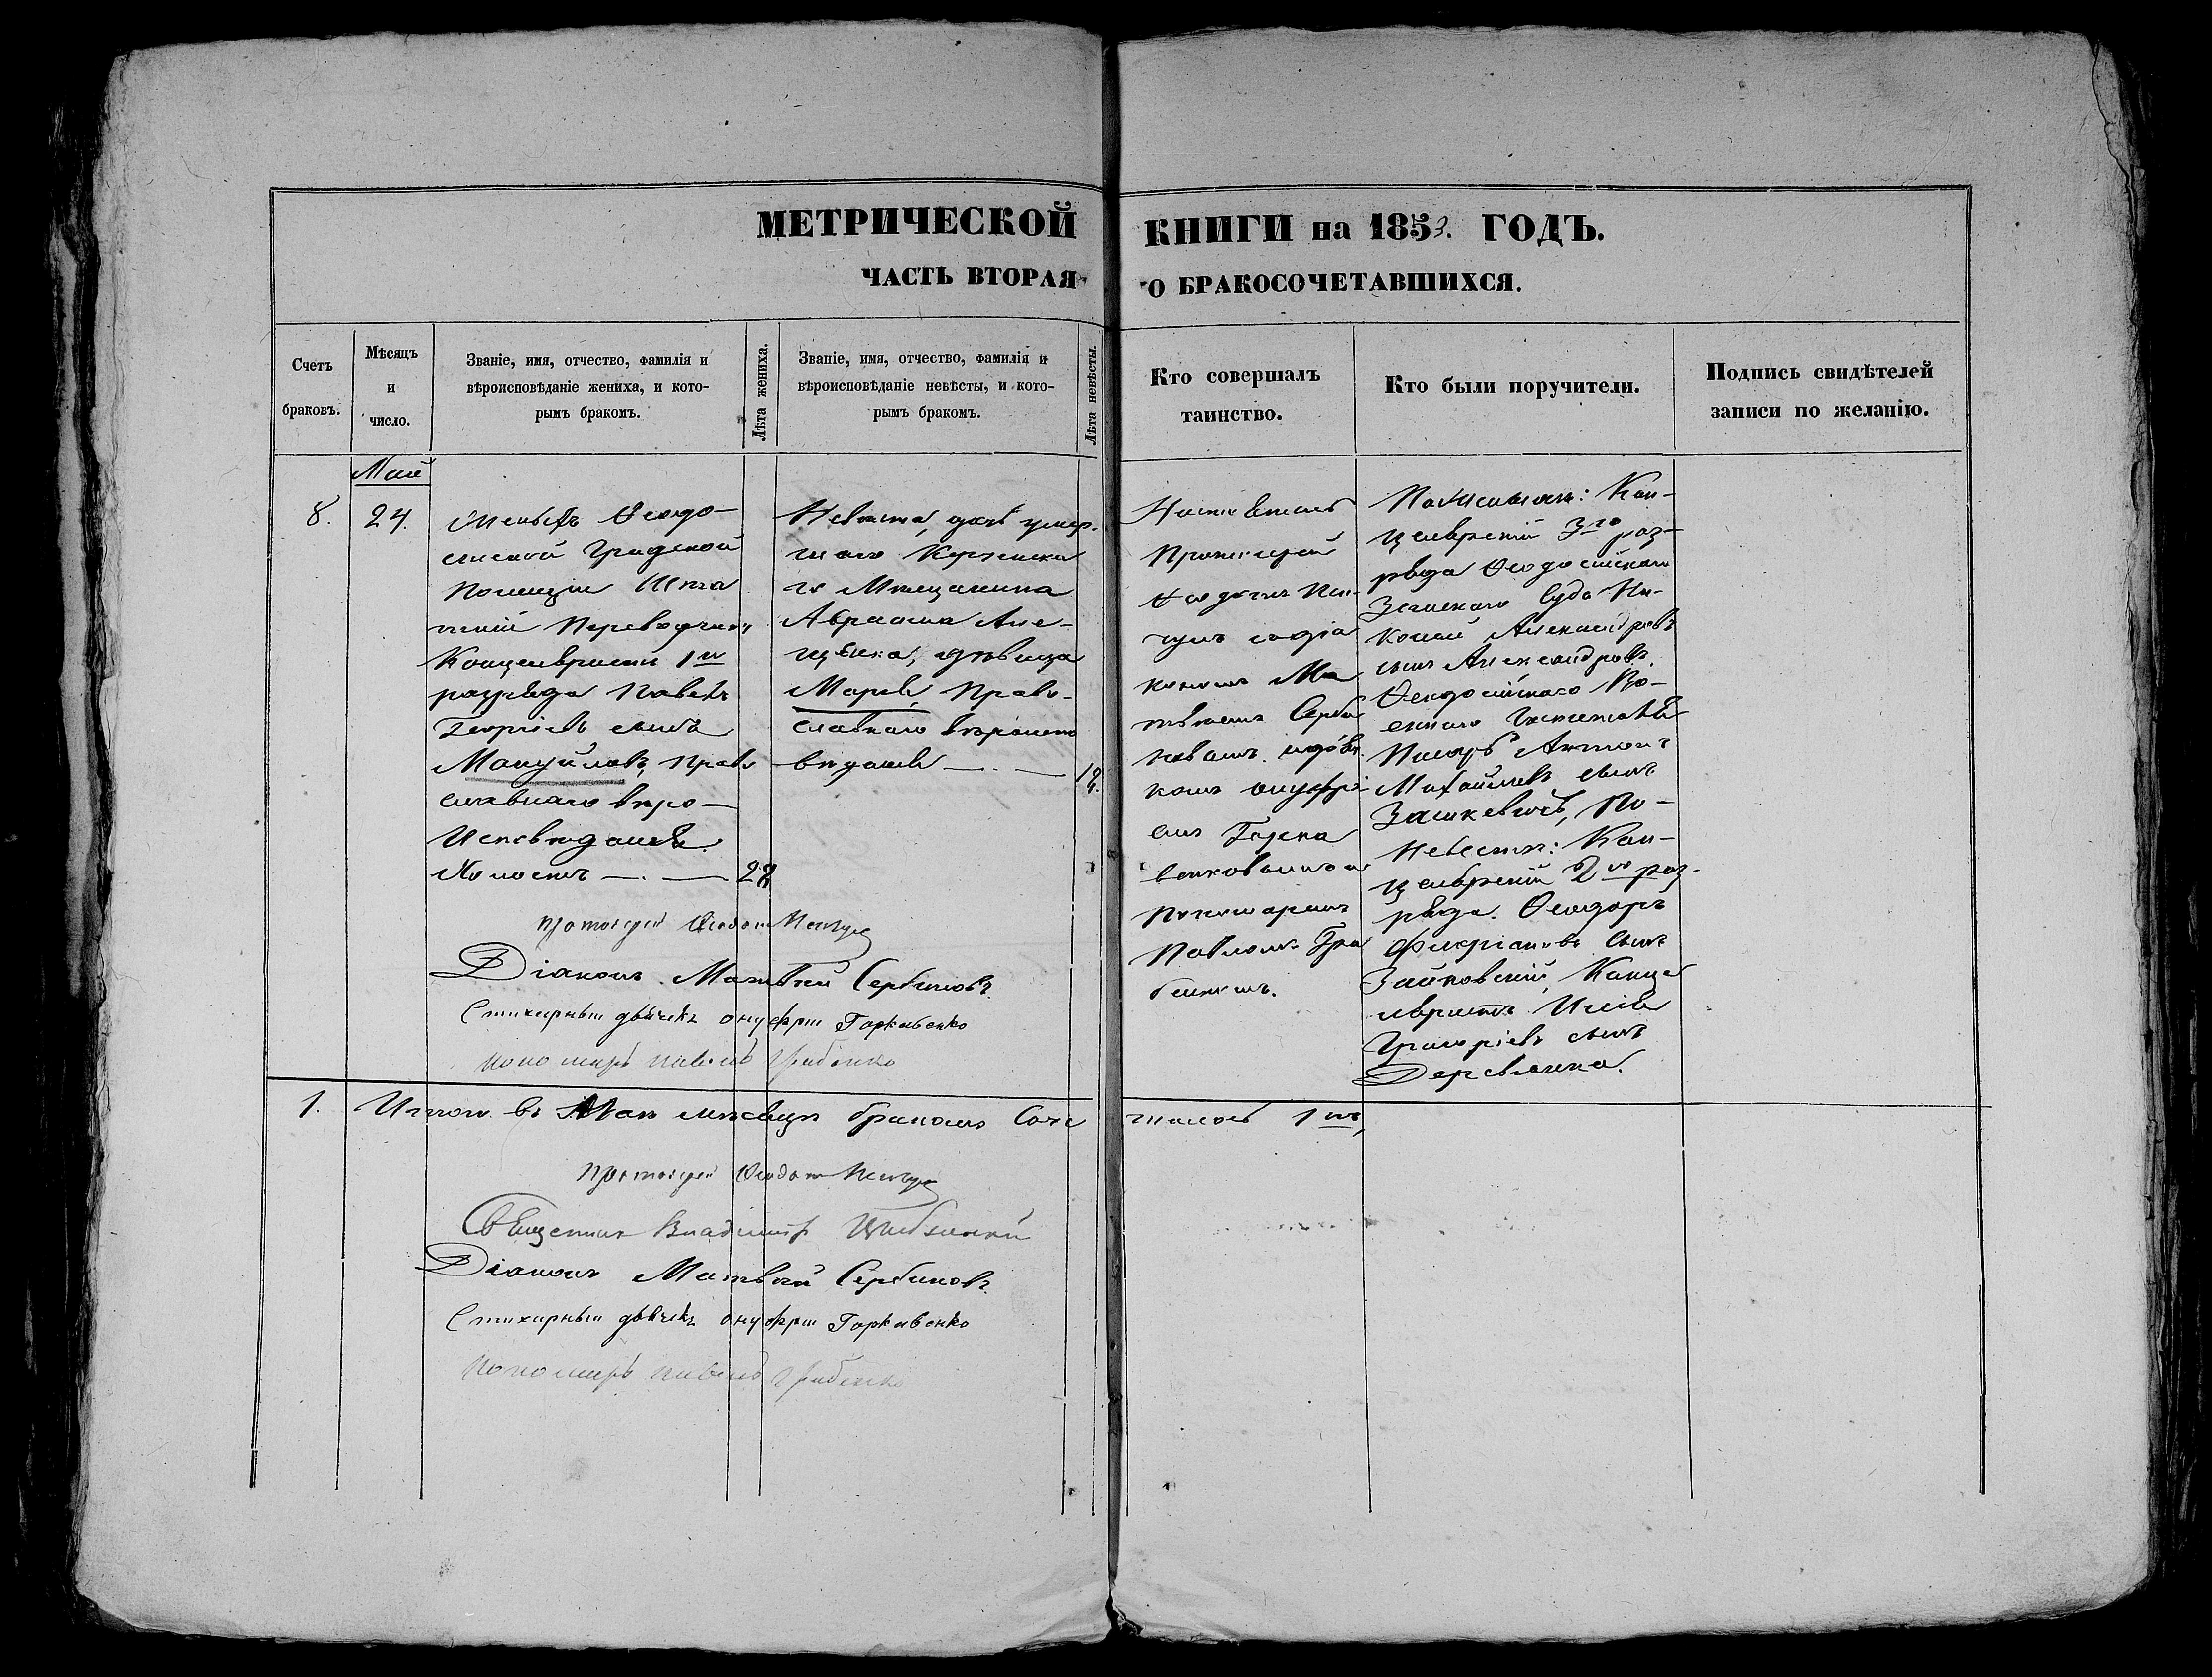 МЕТРИЧЕСКОЙ КНИГИ на 1853. ГОДЪ.
ЧАСТЬ ВТОРАЯ О БРАКОСОЧЕТАВШИХСЯ.
Счетъ
браковъ.
Мѣсяцъ
и
число.
Званіе, имя, отчество, фамилія и
вѣроисповѣданіе жениха, и кото-
рымъ бракомъ.
Лѣта жениха.
Званіе, имя, отчество, фамилія и
вѣроисповѣданіе невѣсты, и кото-
рымъ бракомъ.
Лѣта невѣсты.
Кто совершалъ
таинство.
Кто были поручители.
Подпись свидѣтелей
записи по желанію.
Май
8.
24.
Ѳеодо-
сійской Градской
Полиціи Шта
тный Переводчикъ
Канцеляристъ 1го
разряда Павелъ
Георгіевъ сынъ
Мануйловъ, Право
славнаго вѣро-
Исповѣданія.
Холостъ
Невѣста, дочь умер-
шаго Керченска
го Мѣщанина
Авраама
дѣвица
Марія, Право-
славнаго вѣроиспо
вѣданія
Протоіерей
Ѳеодотъ
діа
кономъ Ма
твѣемъ Серби
новымъ
Горка
венковымъ и
Пономаремъ
Павломъ Гра
бенкомъ.
Кан-
целярскій 3го раз-
ряда Ѳеодосійскаго
Земскаго Суда Ни-
колай Александровъ
сынъ Александровъ.
Ѳеодосійскаго Во-
еннаго
Писарь Антонъ
Михайловъ сынъ
По
Невѣстѣ: Кан-
целярскій 2го раз-
ряда. Ѳеодоръ
сынъ
Зайковскій, Канце
ляристъ Илія
Григорьевъ сынъ
Деревянка.
Протоіерей Ѳеодотъ
Діаконъ Матвѣй Сербиновъ.
Стихарный дьячекъ Онуфрій Горкавенко
Пономарь Павелъ Грабенко
1.
Итого въ Маѣ мѣсяцѣ бракомъ Соче
талось 1нъ,
Протоіерей Ѳеодотъ
Священникъ Владиміръ
Діаконъ Матвѣй Сербиновъ.
Стихарный дьячекъ Онуфрій Горкавенко
Пономарь Павелъ Грабенко